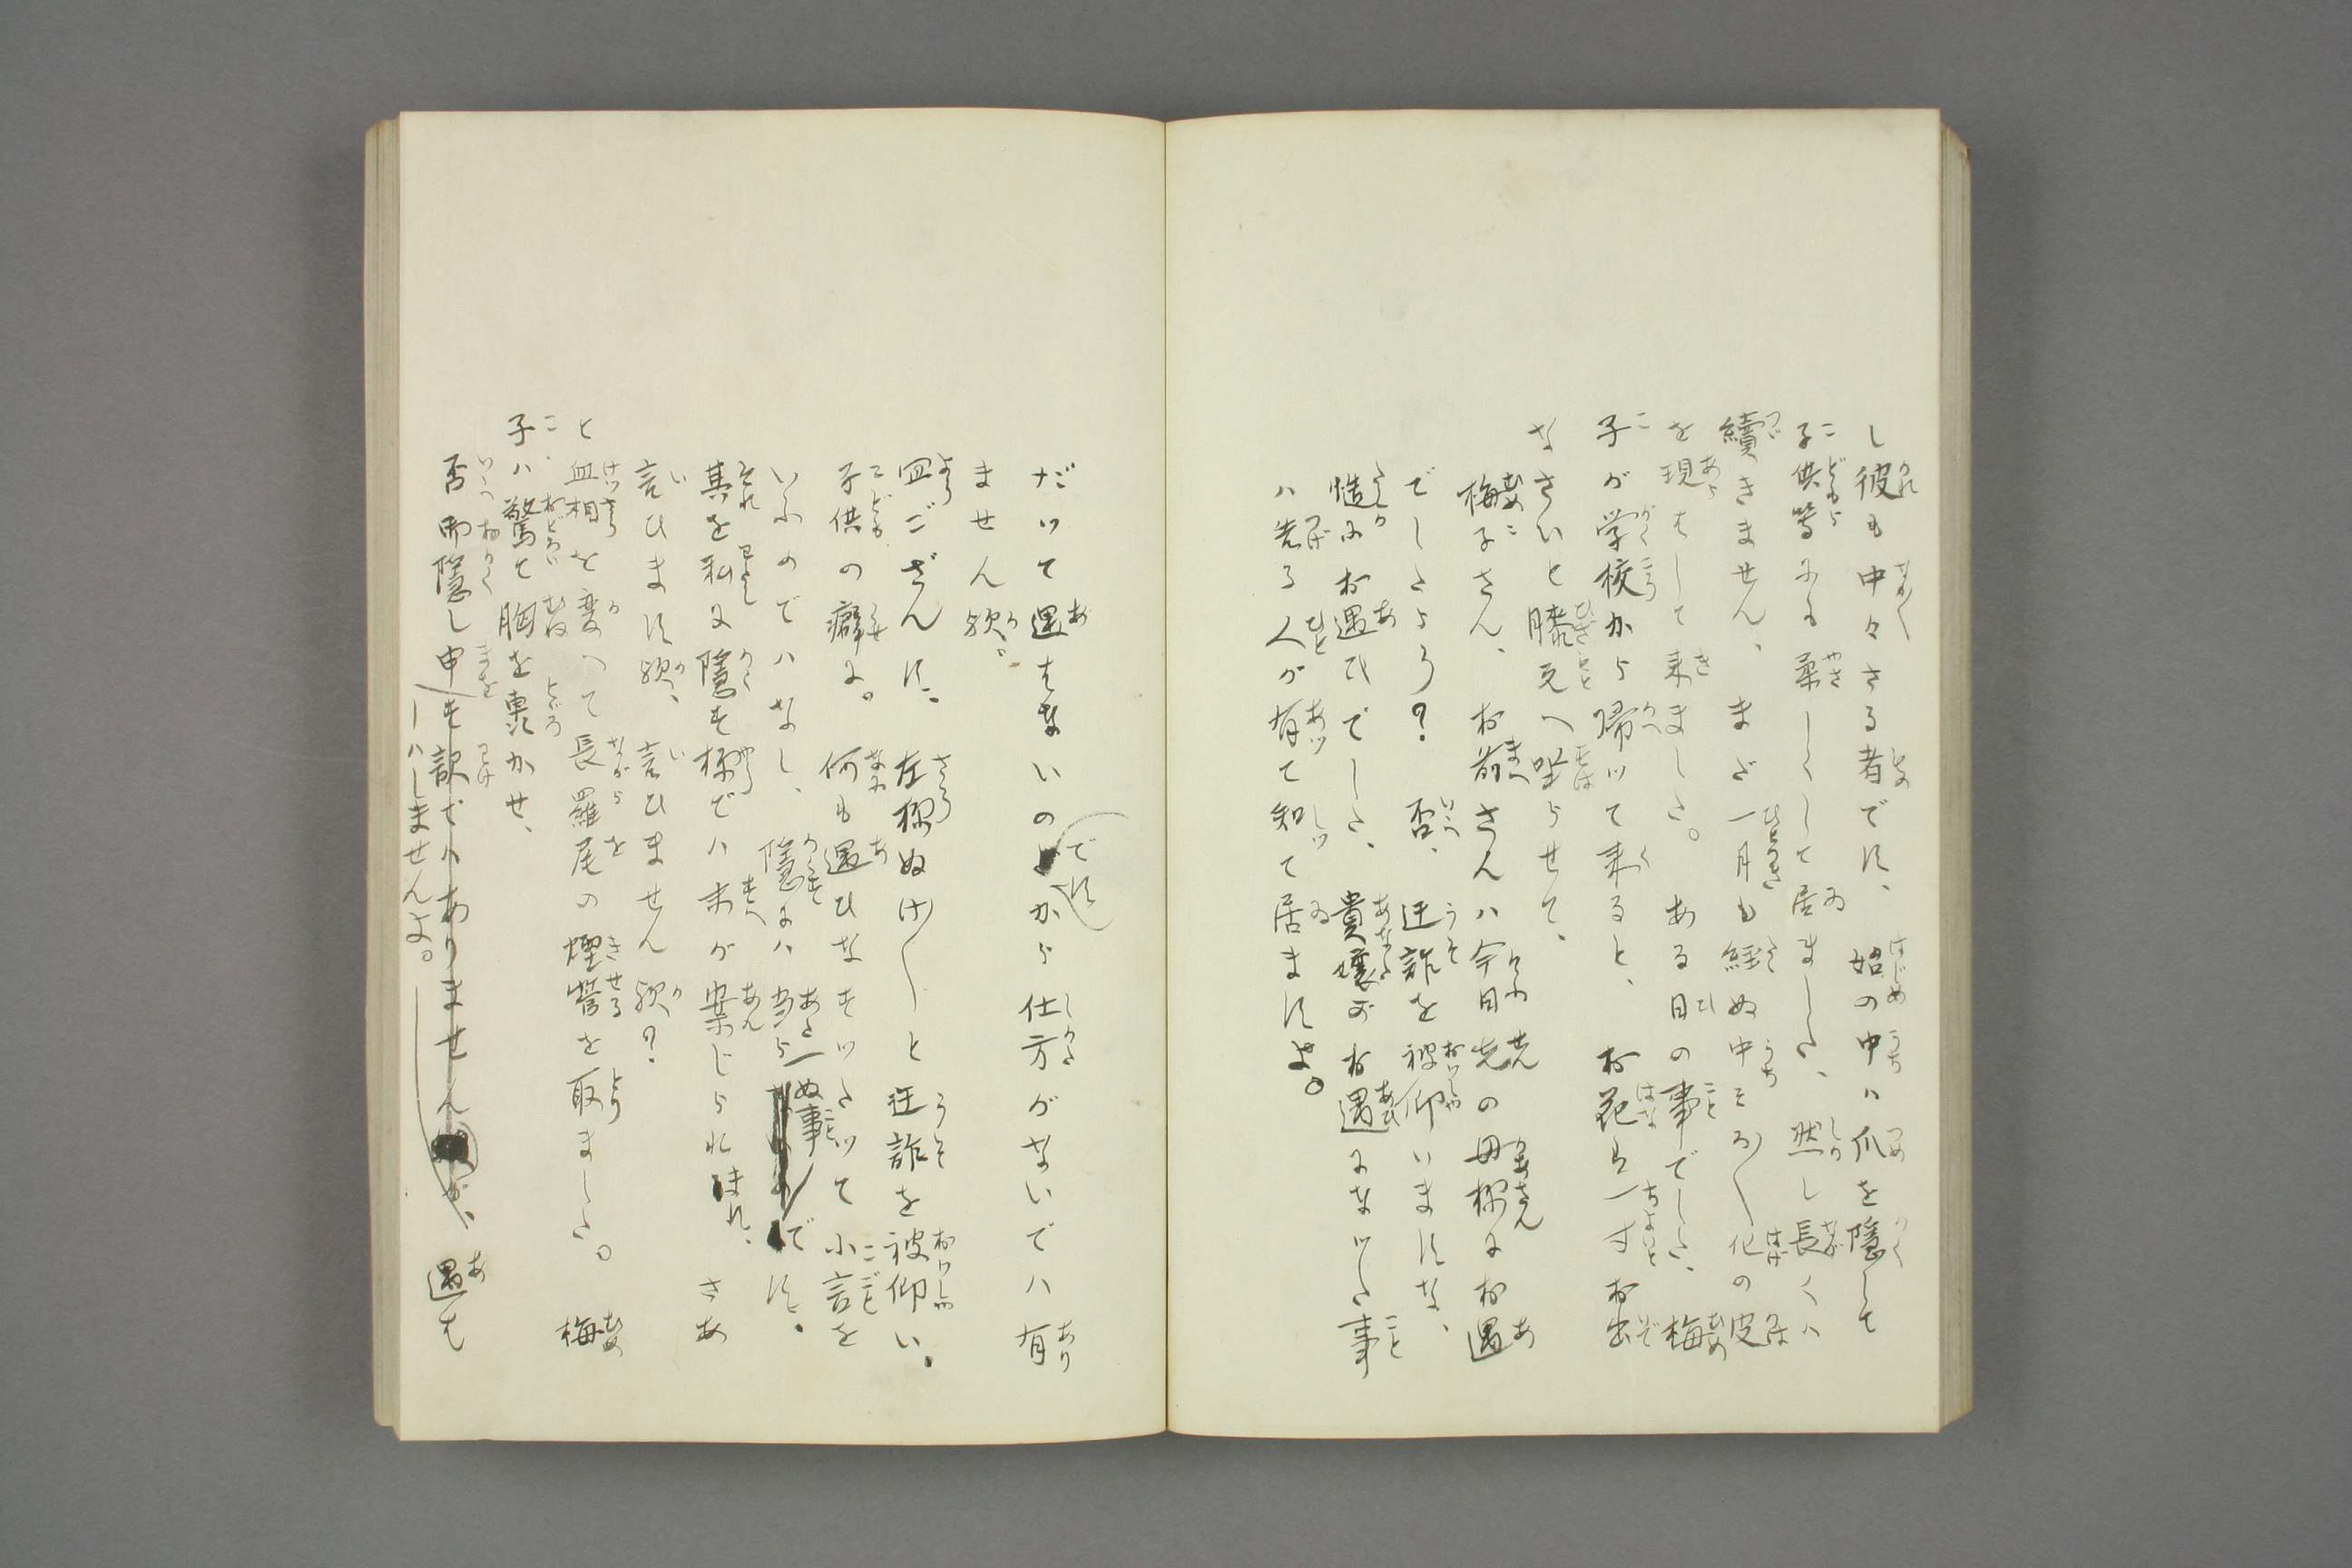 し彼も中々さる者です、始の中ハ爪を隠して
子供等にも柔しくして居ました、然し長くハ
續きません、まだ一月も経ぬ中そろ〱化の皮
を現はして来ました。ある日の事でした、梅
子が学校から帰ツて来ると、お花ハ一寸お出
なさいと膝元へ坐らせて、
梅子さん、お前さんハ今日先の母様にお遇
でしたらう?否、迂詐を被仰いますな、
慥にお遇ひでした、貴孃がお遇になツた事
ハ告る人が有て知て居ますよ。
だツて遇はないのですから仕方がないでハ有
ません歟。
四ござんす。左様ぬけ〱と迂詐を被仰い、
子供の癖に。何も遇ひなすツたツて小言を
いふのでハなし、隠すにハ当らぬ事です。
其を私に隠す様でハ末が案じられます、さあ
言ひます歟、言ひません歟?
と血相を変へて長羅尾の煙管を取ました。梅
子ハ驚て胸を轟かせ、
否御隠し申す訳でハありませんが、遇は
ハしませんよ。